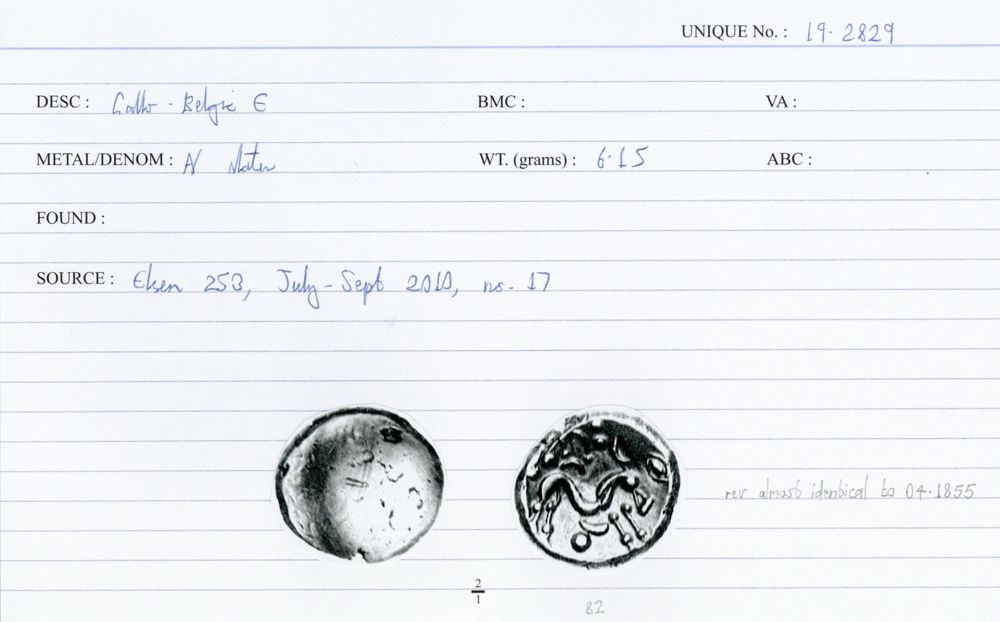 UNIQUE No. : 19. 2829
DESC : Gallo - Belgic E BMC : VA :
METAL/DENOM : A/ Stater WT. (grams) : 6.15 ABC :
FOUND :
SOURCE : Elsen 253, July - Sept 2010, no. 17
rev almost identical to 04.1855
2
1
82